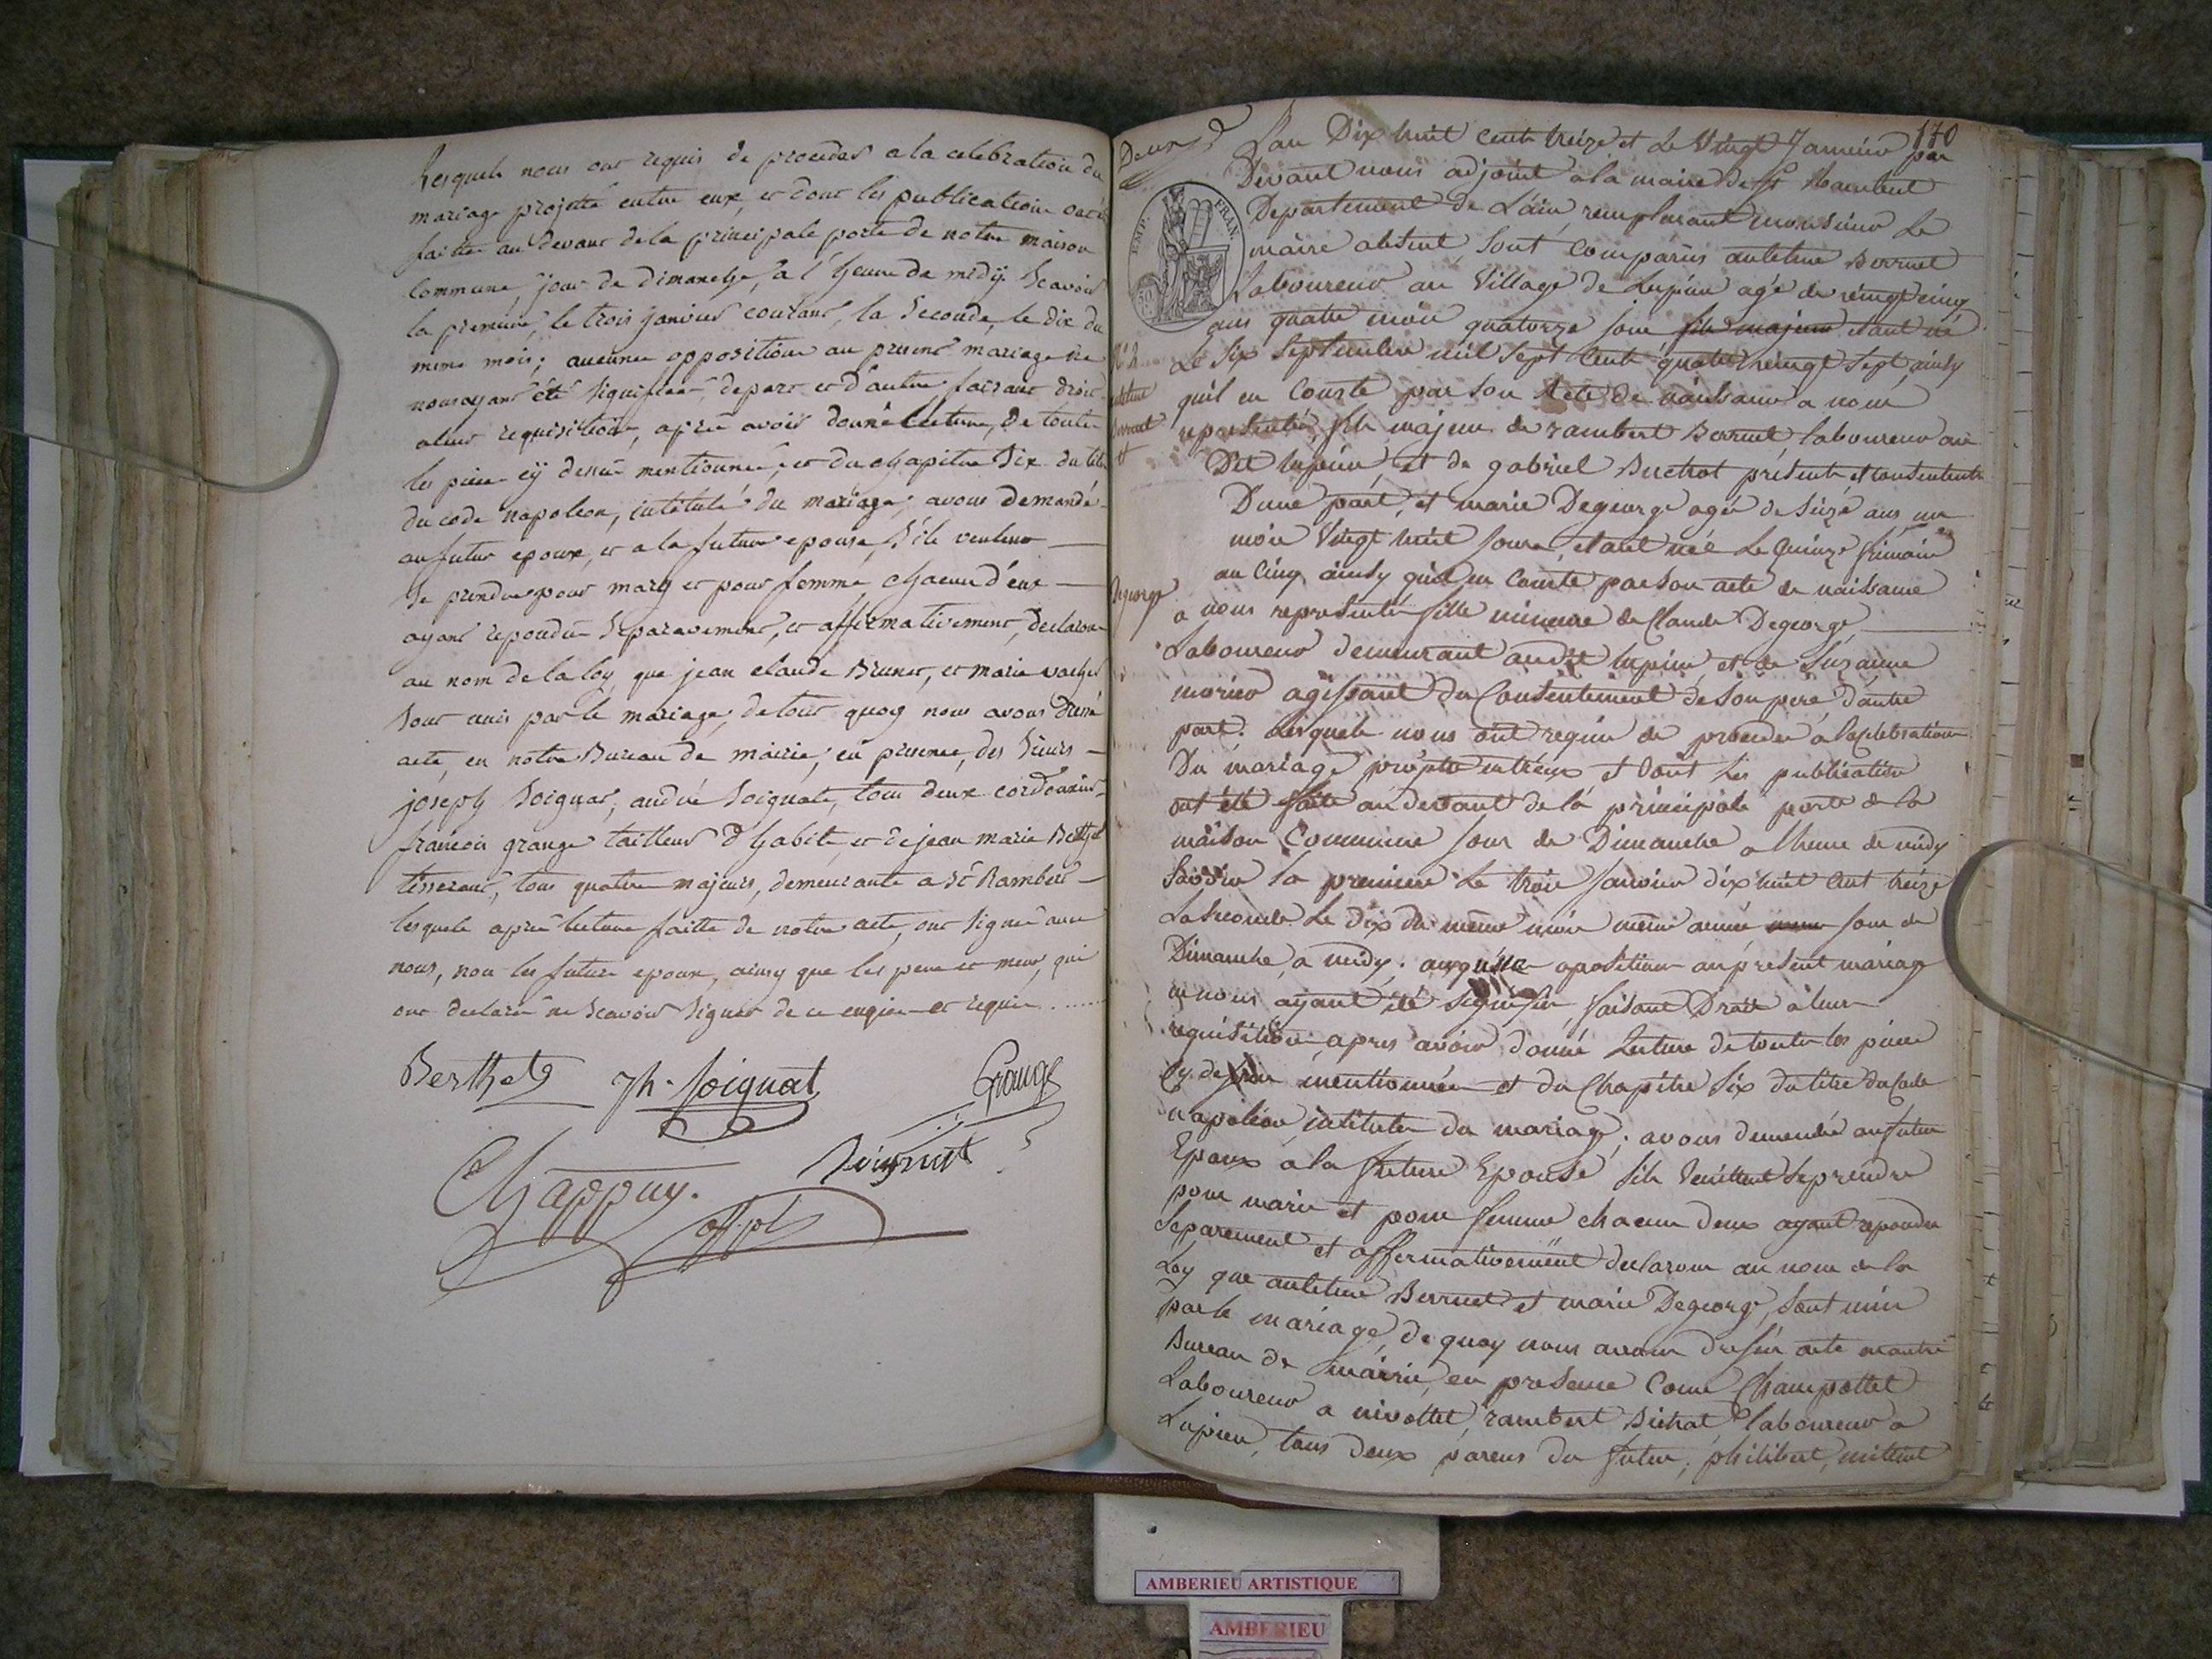 Lesquels nous ont requis de proceder a la celebration du
mariage projetté entre eux, et dont les publications ont été
faittes au devant de la principale porte de notre maison
Commune, jour de dimanche, a l'heure de midÿ. Scavoir
la premiere, le trois janvier courant, la Seconde, le dix du
meme mois; aucune opposition au present mariage ne
nous ayant été Signifiée, depart et d'autre faisant droit
aleur requisition, après avoir donné lecture, de toutes
les pieces cÿ dessus mentionnées, et du chapitre Six du titre
du code napoleon, intitulé du mariage; avons demandé
au futur epoux, et a la future epouse, S'ils veulent
Se prendre pour mary et pour femme, chacun d'eux
ayant repondu Separavement, et affirmativement, declarons
au nom de la loy, que jean claude Brunet, et marie vacher
Sont unis par le mariage, de tout quoy nous avons dressé
acte, en notre Bureau de mairie, en presence, des Sieurs
joseph Soignat, andré Soignat, tous deux cordonniers
francois grange tailleur d'habits, et de jean marie Berthet
tisserant, tous quatre majeurs, demeurants a St Rambert
lesquels après lecture faitte de notre acte, ont Signé avec
nous, non les futurs epoux, ainsy que les peres et meres, qui
ont declaré ne Scavoir Signer de ce enquis et requis
Berthet Jh. Soignat Grange
Chappuy. Soignat
adjt
170
Deux
L'an Dix huit cent treize et Le Vingt Janvier par
Devant nous adjoint a la mairie de St Rambert
Departement de L'ain, remplacant monsieur Le
maire absent, sont comparus antelme Berruet
Laboureur au Village de Lupieu agé de vingt cinq
EMP. FRAN.
50
ans quatre mois quatorze jours fils majeur etant né
Le Six Septembre mil sept cent quatre vingt sept, ainsy
N° 2
antelme
Berruet
et
Degeorge
quil en Conste par son Acte de naissance a nous
representé, fils majeur de rambert Berruet laboureur au
Dit lupieu, et de gabriel Buchot présents et consentents
Dune part, et marie Degeorge agée de Seize ans un
mois Vingt huit jours, etant née Le Quinze frimaire
an Cinq ainsy quil en Conste par son acte de naissance
a nous representé fille mineure de Claude Degeorge
Laboureur demeurant audit lupieu, et de Suzanne
morier agissant du Consentement de son pere, dautre
part. Lesquels nous ont requis de proceder a la Celebration
Du mariage projetté entreux et dont les publications
ont été faite au devant de la principale porte de la
maison Commune jour de Dimanche a lheure de midy
Savoir la premiere Le trois janvier dix huit cent treize
La Seconde Le dix du meme mois meme année jour de
Dimanche, a midy. auqune oposition au present mariage
ne nous ayant été signifiée, faisant Droit a leur
requisition, apres avoir donné Lecture de toutes les pieces
Cy dessus mentionnées et du Chapitre Six du titre du Code
napoléon, intitulé du mariage; avons demandé au futur
Epoux a la future Epouse sils veullent se prendre
pour marie et pour femme chacun deux ayant repondu
Separement et affermativement declarons au nom de la
Loy que antelme Berruet et marie Degeorge, sont unis
par le mariage, de quoy nous avons dressé acte
Bureau de mairie, en presence Come Champottet
Laboureur a nivottet, rambert Buchat laboureur a
Lupieu, tous deux parens du futur, philibert, mittant
AMBERIEU ARTISTIQUE
AMBERIEU